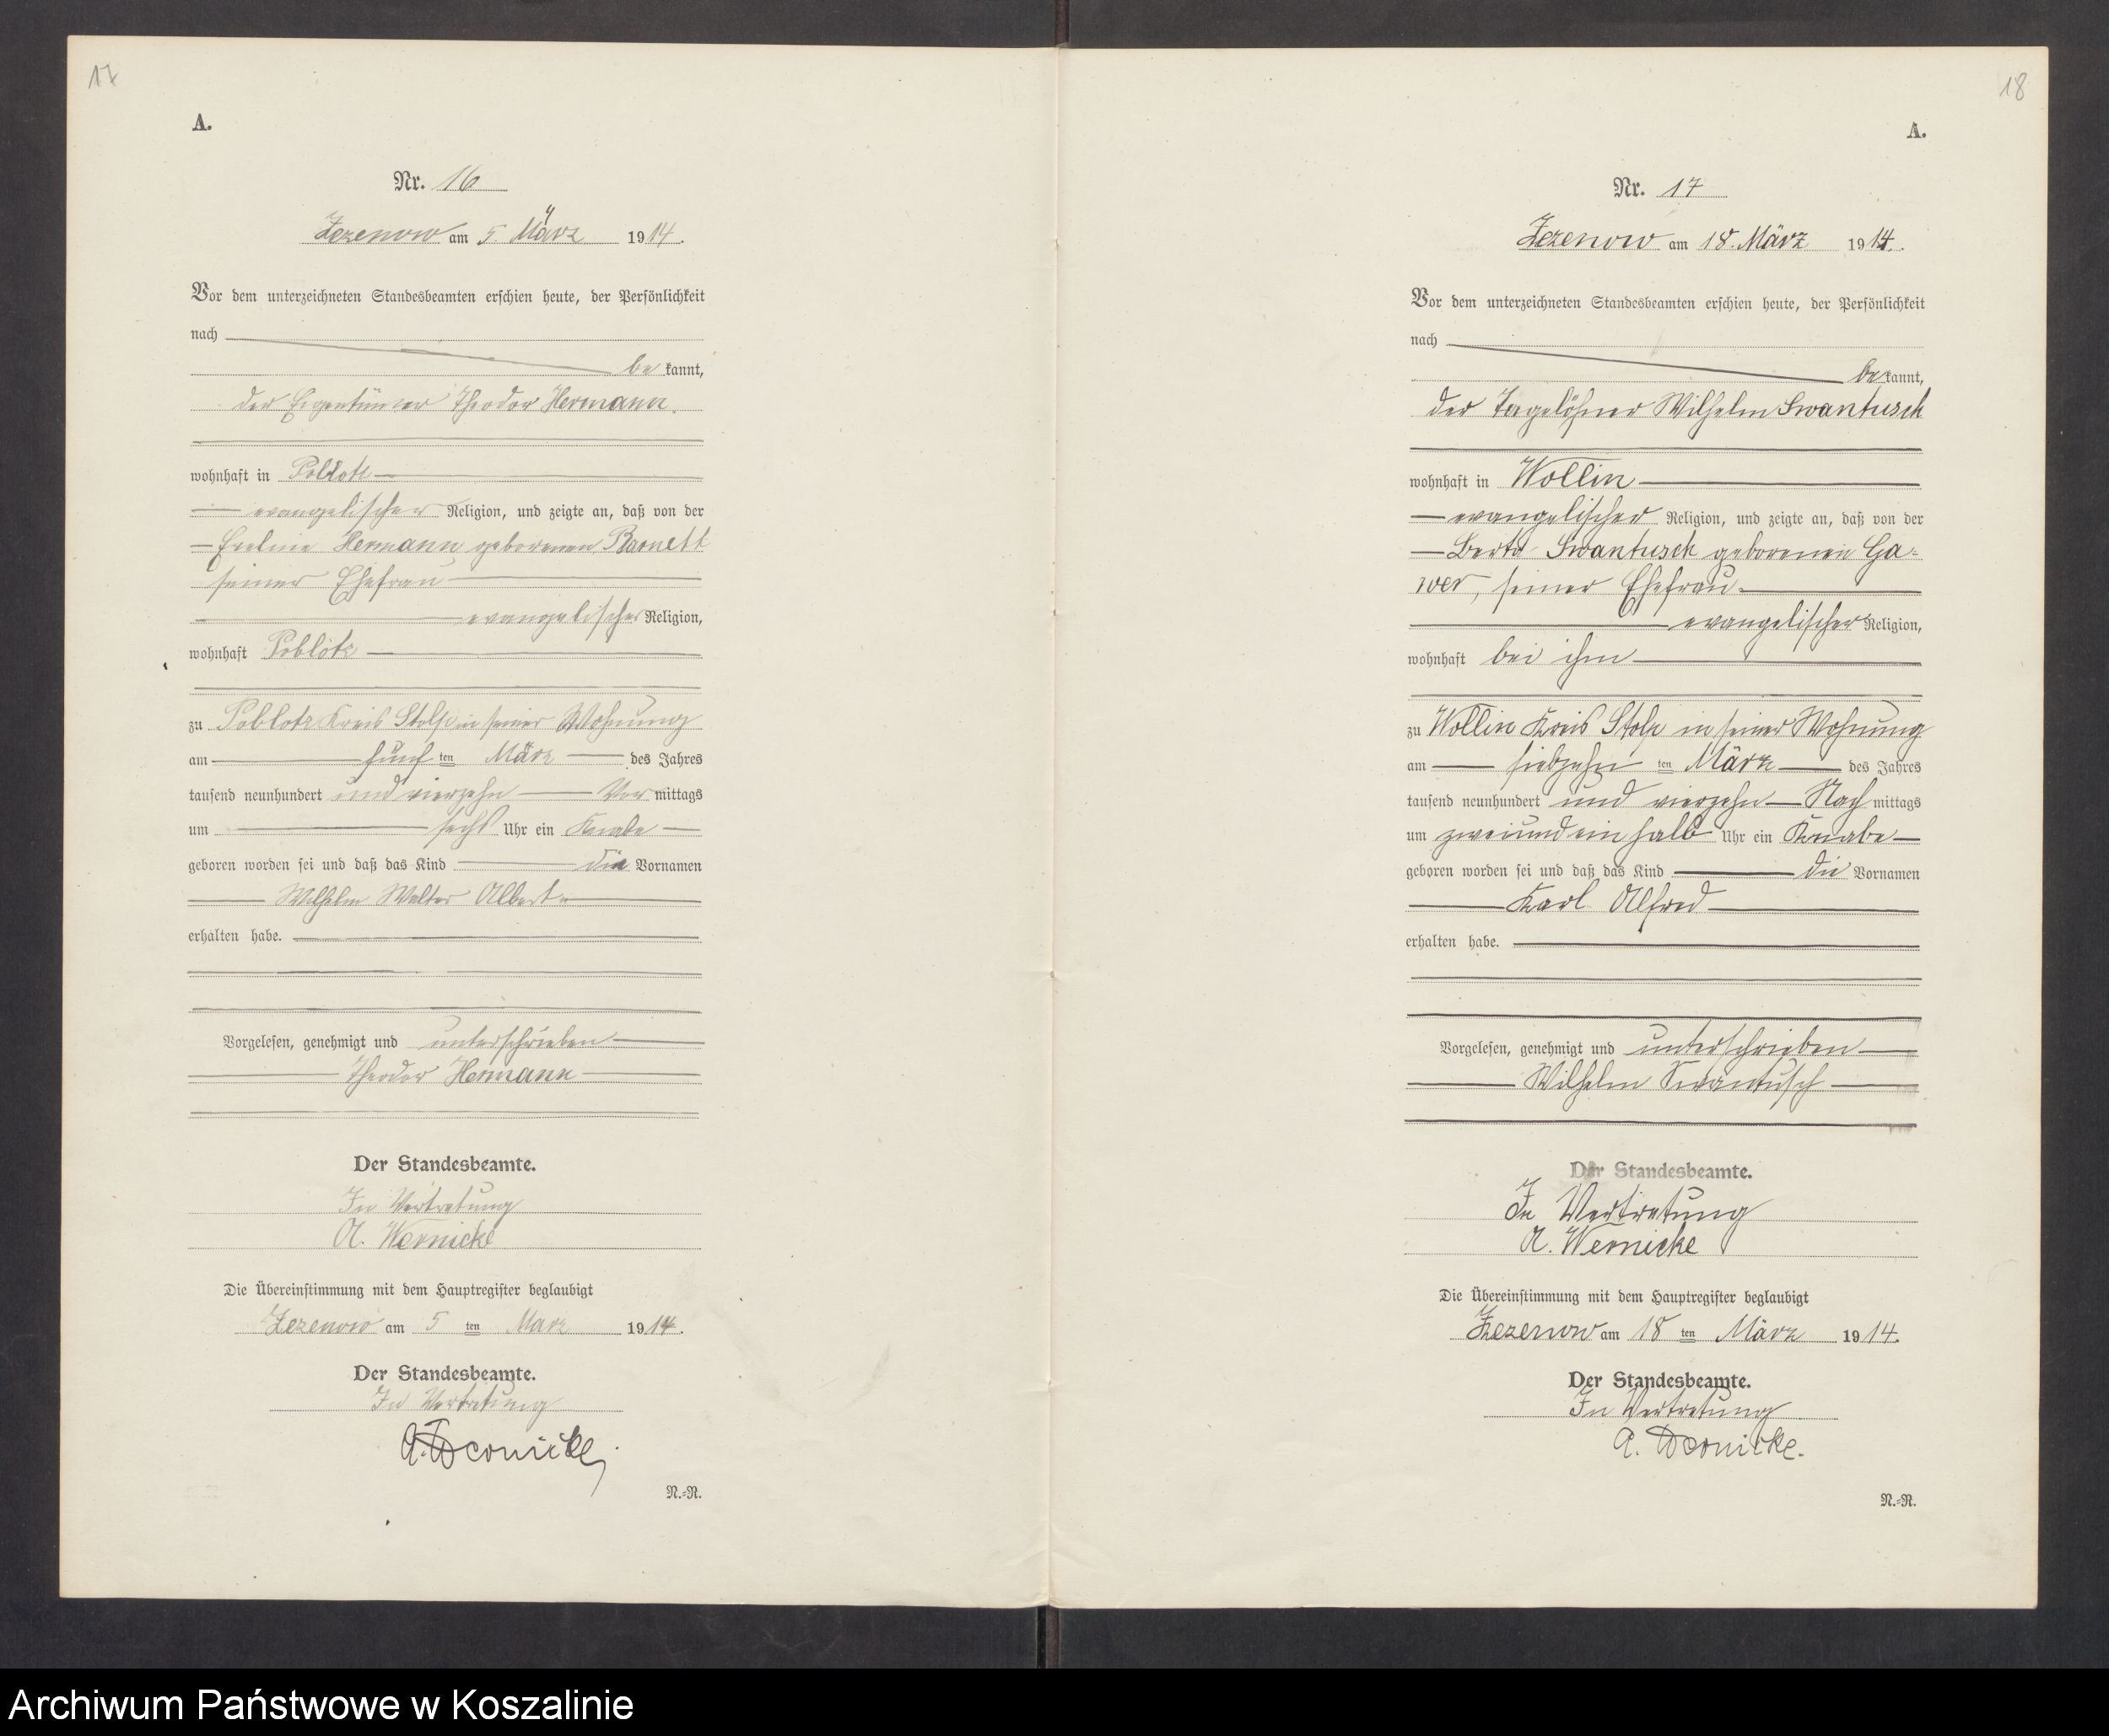 17
A.
Nr. 16
Zezenow am 5. März 1914.
Vor dem unterzeichneten Standesbeamten erschien heute, der Persönlichkeit
nach
be kannt,
der Eigentümer Theodor Hermann
wohnhaft in Poblotz
evangelischer Religion, und zeigte an, daß von der
Hermann geborenen
seiner Ehefrau
evangelischer Religion,
wohnhaft Poblotz
zu Poblotz Kreis Stolp in seiner Wohnung
am fünf ten März des Jahres
tausend neunhundert und vierzehn Vor mittags
um sechs Uhr ein Knabe
geboren worden sei und daß das Kind die Vornamen
Wilhelm Walter Albert
erhalten habe.
Vorgelesen, genehmigt und unterschrieben
Theodor Hermann
Der Standesbeamte.
In Vertretung
A. Wernicke
Die Übereinstimmung mit dem Hauptregister beglaubigt
Zezenow am 5 ten März 1914.
Der Standesbeamte.
In Vertretung
A. Wernicke
N.-R.
18
A.
Nr. 17
Zezenow am 18. März 1914.
Vor dem unterzeichneten Standesbeamten erschien heute, der Persönlichkeit
nach
be kannt,
der Tagelöhner Wilhelm Swantusch
wohnhaft in Wollin
evangelischer Religion, und zeigte an, daß von der
Berta Swantusch geborenen Ga-
wer, seiner Ehefrau
evangelischer Religion,
wohnhaft bei ihm
zu Wollin Kreis Stolp in seiner Wohnung
am siebzehn ten März des Jahres
tausend neunhundert und vierzehn Nach mittags
um zweiundeinhalb Uhr ein Knabe
geboren worden sei und daß das Kind die Vornamen
Karl Alfred
erhalten habe.
Vorgelesen, genehmigt und unterschrieben
Wilhelm Swantusch
Der Standesbeamte.
In Vertretung
A. Wernicke
Die Übereinstimmung mit dem Hauptregister beglaubigt
Zezenow am 18 ten März 1914.
Der Standesbeamte.
In Vertretung
A. Wernicke.
N.-R.
Archiwum Państwowe w Koszalinie